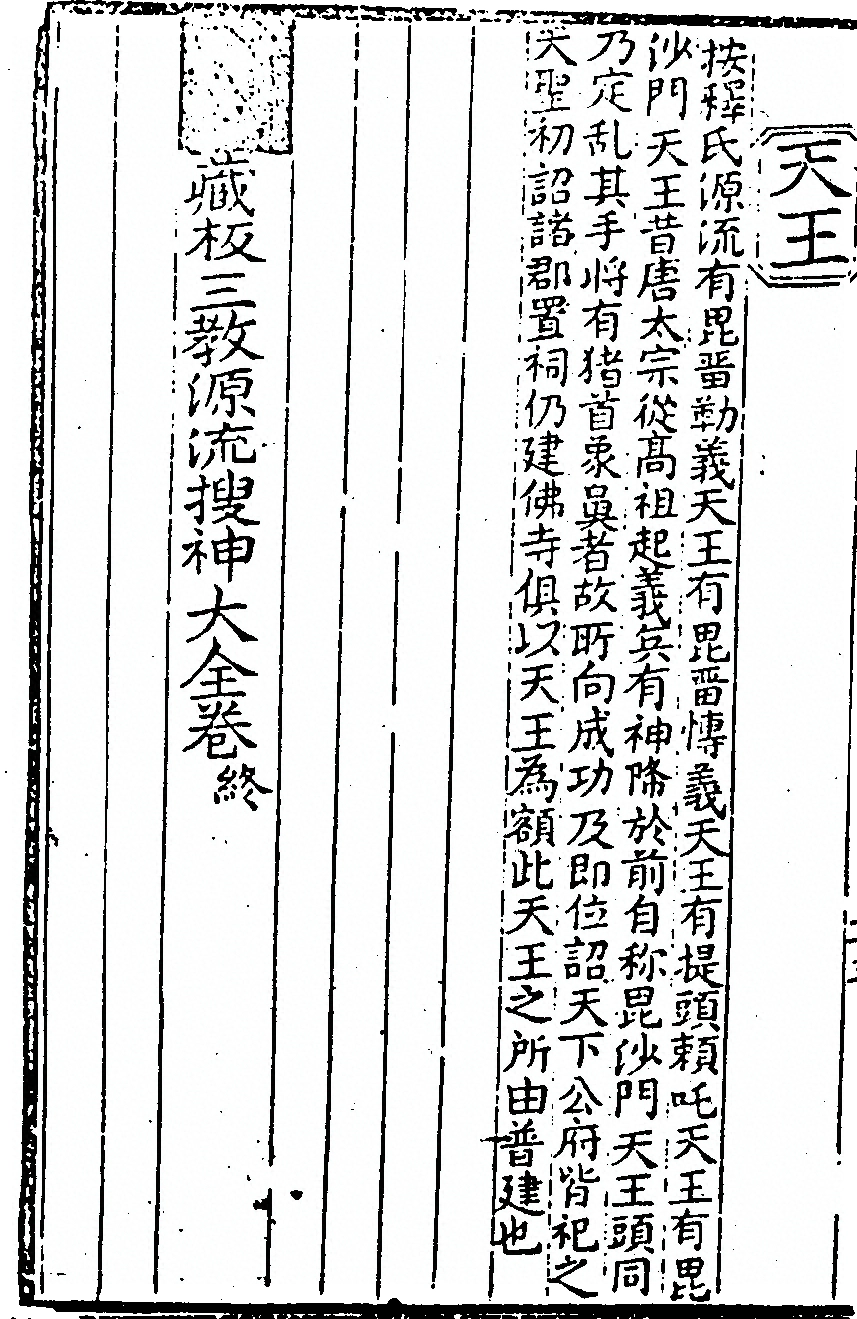 天王
按釋氏源流有毘畨勒義天王有毘畨慱義天王有提頭頼吒天王有毘
沙門天王昔唐太宗從髙祖起義兵有神降於前自称毘沙門天王頭同
乃定乱其手将有猪首象鼻者故所向成功及即位詔天下公府皆祀之
大聖初詔諸郡置祠仍建佛寺俱以天王為額此天王之所由普建也
藏板三教源流搜神大全卷終